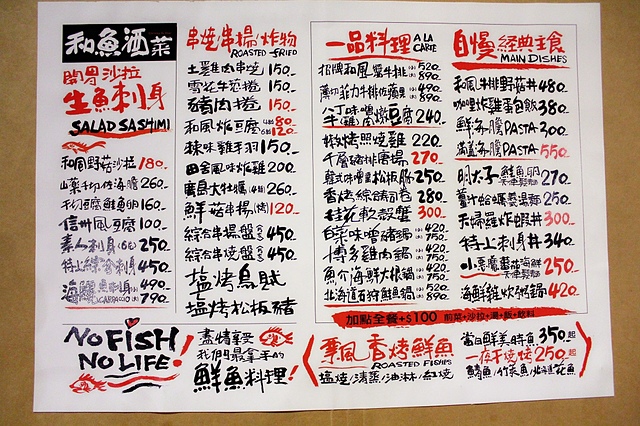 和魚酒菜
開胃沙拉
生魚刺身
SALAD SASHIMI
和風野菜沙拉 180.
山藥千切佐海膽 260.
千切豆腐鮭魚卵 160.
信州風豆腐 100.
素人刺身(6p) 250.
特上綜合刺身 450.
490.
CARPACCIO 790.
串燒串揚炸物
ROASTED FRIED
土雞肉串燒 150.
150.
豬肉捲 150.
和風炸豆腐 80.
120.
辣味雞羽 150.
田舍風味炸雞 200.
廣島大牡蠣 260.
鮮菇串揚(烤) 120.
綜合串揚盤 450.
綜合串燒盤 450.
塩烤烏賊
塩烤松板豬
一品料理 A LA CARTE
招牌和風 牛排 520.
890.
薄切菲力牛排 490.
890.
八丁味噌 豆腐 240.
照燒雞 220.
千層豬排唐揚 270.
韓式味噌 松板豚 250.
香烤綜合菇卷 280.
桂花軟殼蟹 300.
白菜味噌豬鍋 420.
750.
博多雞肉鍋 420.
750.
魚介海鮮大根鍋 420.
750.
北海道石狩鮭魚鍋 520.
890.
自慢經典主食
MAIN DISHES
和風牛排野菇丼 480.
咖哩炸雞蛋包飯 380.
鮮海膽PASTA 300.
滿盆海膽PASTA 550.
明太子鮭魚卵 270.
薑汁蛤蠣 湯麵 250.
天婦羅炸蝦丼 300.
特上刺身丼 340.
小惡魔蕃茄海鮮 250.
海鮮雜炊粥鍋 420.
加點全餐+$100 前菜+沙拉+湯+飯+飲料
NO FISH
NO LIFE!
盡情享受
我們最拿手的
鮮魚料理!
季風香烤鮮魚
ROASTED FISHS
塩燒/清蒸/油淋/紅燒
當日鮮美時魚 350.起
一夜干燒烤 250.起
鯖魚/竹莢魚/北海道花魚